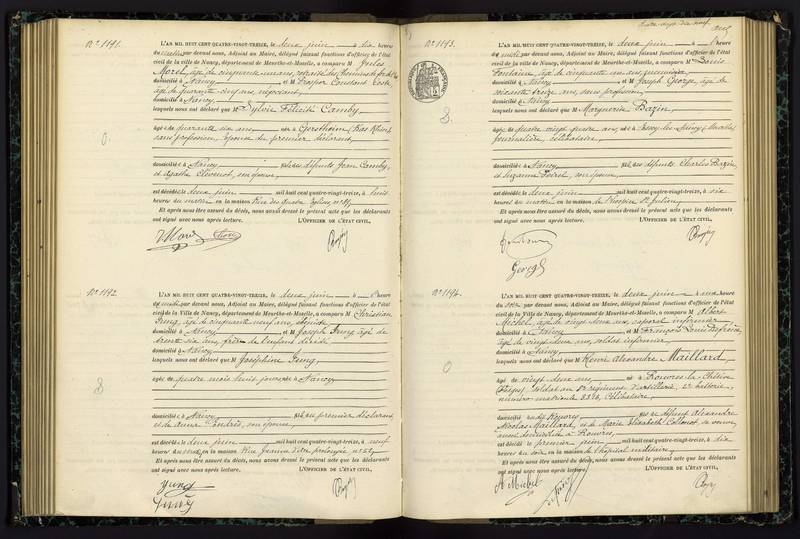 N° 1191.
L'AN MIL HUIT CENT QUATRE-VINGT-TREIZE, le deux juin à dix heures
du matin par devant nous, Adjoint au Maire, délégué faisant fonctions d'officier de l'état
civil de la ville de Nancy, département de Meurthe-et-Moselle, a comparu M Jules
Morel, âgé de cinquante un ans,
domicilié à Nancy et M Prosper Constant
âgé de quarante cinq ans, négociant
domicilié à Nancy
lesquels nous ont déclaré que M Sylvie Félicité Camby
âgée de quarante six ans née à Gerstheim (Bas Rhin)
sans profession, épouse du premier déclarant,
domiciliée à Nancy fille des défunts Jean Camby,
et Agathe Clevenot, son épouse,
est décédée le deux juin mil huit cent quatre-vingt-treize, à huit
heures du matin en la maison Rue des Quatre Eglises n°
Et après nous être assuré du décès, nous avons dressé le présent acte que les déclarants
ont signé avec nous après lecture. L'OFFICIER DE L'ÉTAT CIVIL,
N° 1192.
L'AN MIL HUIT CENT QUATRE-VINGT-TREIZE, le deux juin à heure
du par devant nous, Adjoint au Maire, délégué faisant fonctions d'officier de l'état
civil de la Ville de Nancy, département de Meurthe-et-Moselle, a comparu M Christian
Jung, âgé de cinquante neuf ans,
domicilié à Nancy et M Joseph Jung âgé de
trente six ans, frère de l'enfant décédé
domicilié à Nancy
lesquels nous ont déclaré que M Joséphine Jung,
âgée de quatre mois huit jours née à Nancy
domiciliée à Nancy fille du premier déclarant,
et de Anna Condrés, son épouse,
est décédée le deux juin mil huit cent quatre-vingt-treize, à neuf
heures du en la maison Rue Jeanne d'Arc prolongée n° 52
Et après nous être assuré du décès, nous avons dressé le présent acte que les déclarants
ont signé avec nous après lecture. L'OFFICIER DE L'ÉTAT CIVIL,
Yung
Yung
N° 1193.
L'AN MIL HUIT CENT QUATRE-VINGT-TREIZE, le deux juin à heure
du par devant nous, Adjoint au Maire, délégué faisant fonctions d'officier de l'état
civil de la ville de Nancy, département de Meurthe-et-Moselle, a comparu M Louis
Fontaine, âgé de cinquante un ans,
domicilié à Nancy et M Joseph George, âgé de
soixante treize ans, sans profession,
domicilié à Nancy
lesquels nous ont déclaré que M Marguerite Bazin,
âgée de quatre vingt quatre ans, née à Essey les Nancy (Meurthe)
journalière, célibataire,
domiciliée à Nancy fille des défunts Charles Bazin,
et Suzanne son épouse,
est décédée le deux juin mil huit cent quatre-vingt-treize, à six
heures du matin en la maison de l'Hospice St Julien,
Et après nous être assuré du décès, nous avons dressé le présent acte que les déclarants
ont signé avec nous après lecture. L'OFFICIER DE L'ÉTAT CIVIL,
George
N° 1194.
L'AN MIL HUIT CENT QUATRE-VINGT-TREIZE, le deux juin à heure
du soir par devant nous, Adjoint au Maire, délégué faisant fonctions d'officier de l'état
civil de la Ville de Nancy, département de Meurthe-et-Moselle, a comparu M Albert
Michel, âgé de vingt deux ans, caporal infirmier
domicilié à Nancy et M François Louis
âgé de vingt deux ans, soldat infirmier,
domicilié à Nancy
lesquels nous ont déclaré que M Henri Alexandre Maillard,
âgé de vingt deux ans, né à Rouvres la Chétive
(Vosges) soldat au 8e régiment d'artillerie, 2e batterie,
numéro matricule 3386, célibataire,
domicilié audit Rouvres fils de défunt Alexandre
Nicolas Maillard, et de Marie Elisabeth Collenot, sa veuve,
aussi domiciliée à Rouvres,
est décédé le premier juin, mil huit cent quatre-vingt-treize, à dix
heures du soir en la maison de l'hôpital militaire,
Et après nous être assuré du décès, nous avons dressé le présent acte que les déclarants
ont signé avec nous après lecture. L'OFFICIER DE L'ÉTAT CIVIL,
A Michel